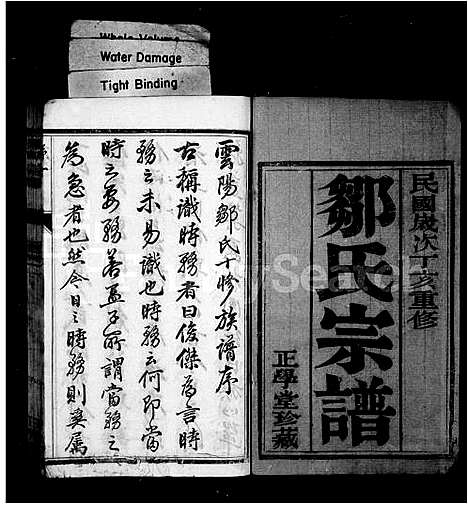 Whole Volume
Water Damage
Tight Binding
民國歲次丁亥重修
鄒氏宗譜
正學堂珍藏
雲陽鄒氏十修族譜序
古稱識時務者曰俊傑為言時
務之未易識也時務云何即當
時之要務若孟子所謂當務之
為急者也然今日之時務則奚属